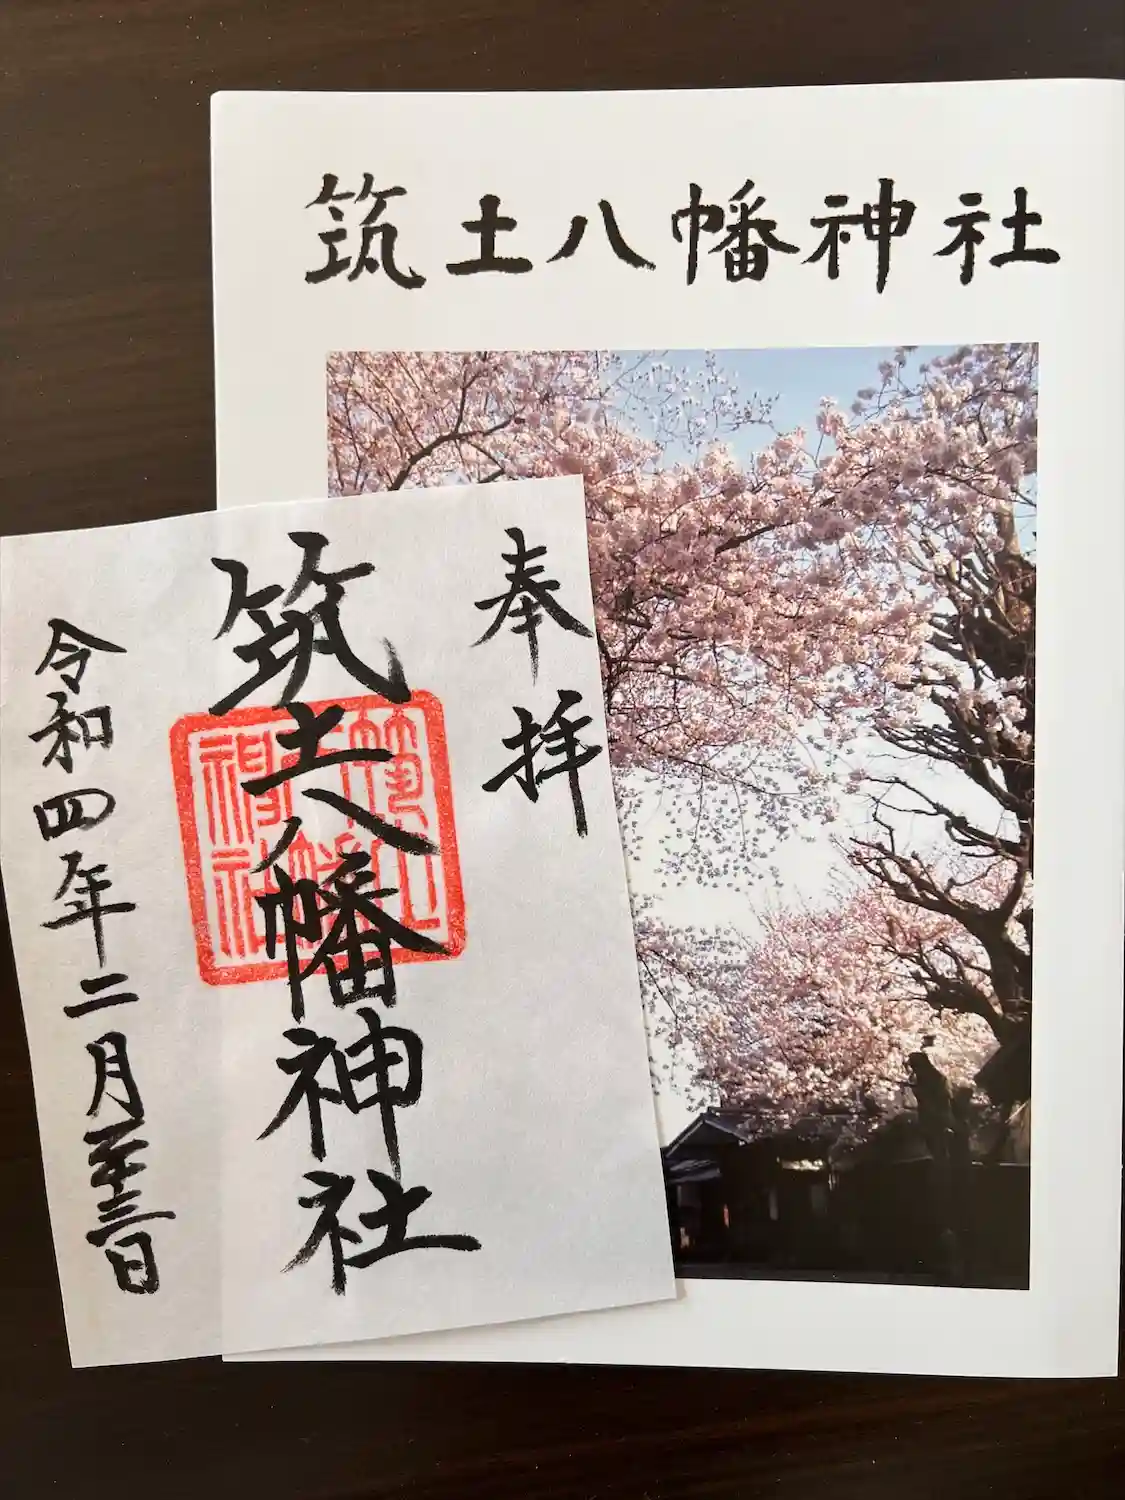 筑土八幡神社
奉拝
筑土八幡神社
令和四年二月二十三日